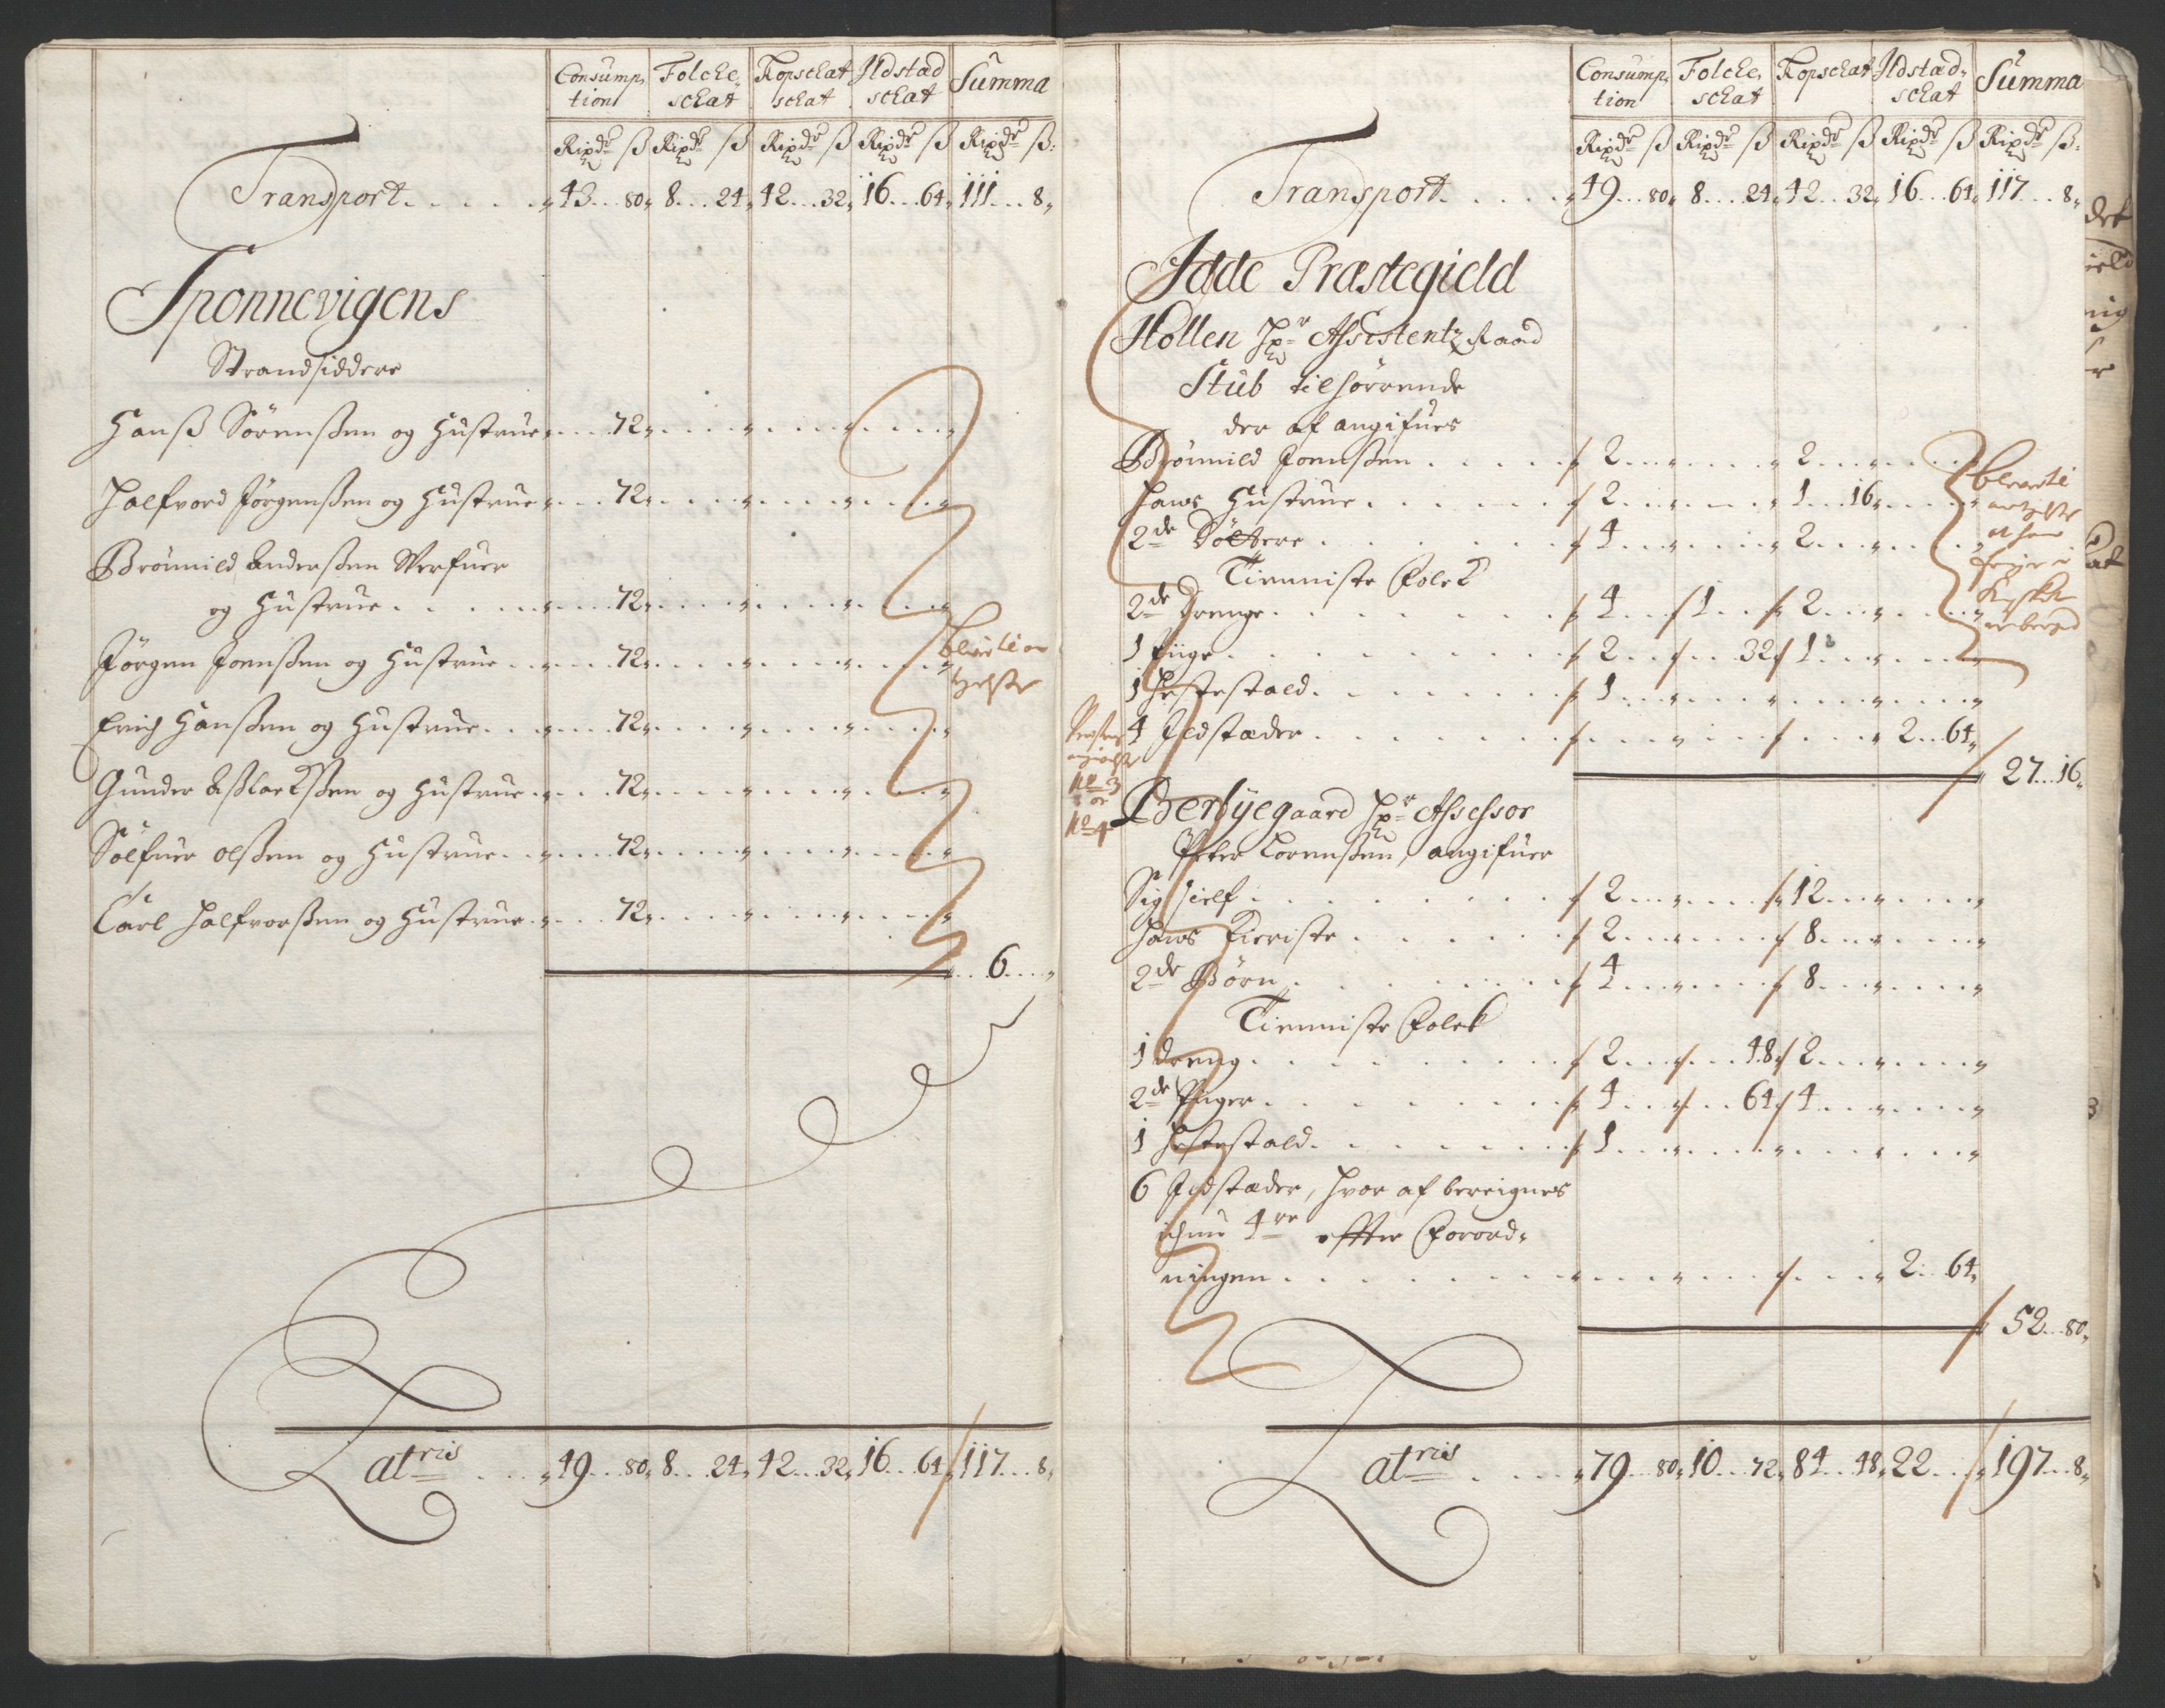 Consump, Folcke, Kopschat Ildstad Summa
tion schat schat schat
Rixdr ß Rixdr ß Rixdr ß Rixdr ß Rixdr ß:
Transport . . . . . 43 . . 80, 8 . . . 24, 42 . . . 32, 16 . . . 64, 111 . . . 8,
Sponnevigens
Strandsiddere
Hanß Sörenßen og Hustrue . . . 72,
Halfvord Jörgenßen og Hustrue . . . 72,
Brönnild Anderßen Werfuer
og Hustrue . . . . . 72,
Jörgen Joenßen og Hustrue . . . 72,
Erich Hanßen og Hustrue . . . 72,
Gunder Aßlackßen og Hustrue . . . 72,
Sölfuer Olßen og Hustrue . . . 72,
Carl Halfvorßen og Hustrue . . . 72,
6 . . .
Latris . . . 49 . . 80, 8 . . 24, 42 . . . 32, 16 . . . 64, 117 . . . 8,
Consump, Folcke, Kopschat Ildstad,, Summa
tion schat schat
Rixdr ß Rixdr ß Rixdr ß Rixdr ß Rixdr ß:
Transport . . . . . 49 . . . 80, 8 . . . 24, 42 . . . 32, 16 . . . 64, 117 . . . 8,
Idde Præstegield
Hollen Hr Assistentz Raad
Stub tilhörrende
der af angifues
Brönnild Joenßen . . . . . 2 . . . . . . 2 . . .
Hans Hustrue . . . . . 2 . . . . . . 1 . . . 16,
2de Döttere . . . . . 4 . . . . . . 2 . . .
Tienniste Folck
2de Drenge . . . . . 4 . . . 1 . . . 2 . . .
1 Piige . . . . . 2 . . . . . 32, 1 . . .
1 Hestestald . . . . . 1 . . .
4 Ildstæder . . . . . 2 . . 64,
27 . . 16,
No 3
No 4
Berbyegaard Hr Assessor
Peter Lorenßen, angifuer
Sig Sielf . . . . . 2 . . . . . . 12 . . .
Hans Kieriste . . . . . 2 . . . . . . 8 . . .
2de Börn . . . . . 4 . . . . . . 8 . . .
Tienniste Folck
1 dreng . . . . . 2 . . . . . 48, 2 . . .
2de Piiger . . . . . 4 . . . . . 64, 4 . . .
1 Hestestald . . . . . 1 . . .
6 Ildstæder, hvor af bereignes
ichun 4re effter Forord,,
ningen . . . . . 2 . . 64,
52 . . 80,
Latris . . . 79 . . 80, 10 . . . 72, 84 . . 48, 22 . . . 197 . . . 8,